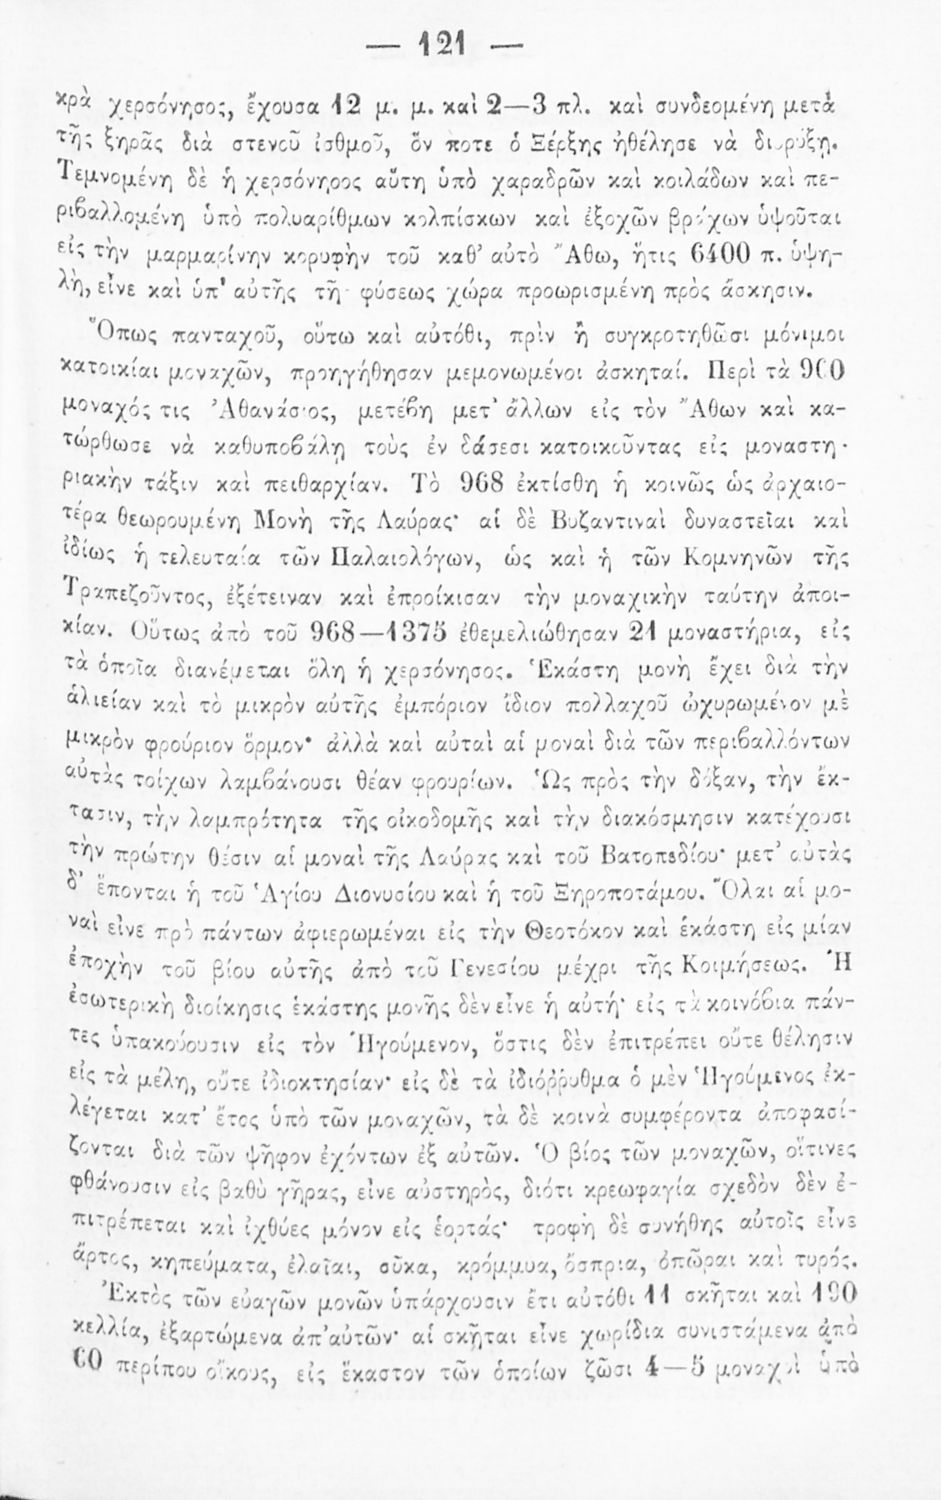 — 121 —
κρὰ χερσόνησος, ἔχουσα 12 μ. μ. καὶ 2—3 πλ. καὶ συνδεομένη μετὰ
τῆς ξηρᾶς διὰ στενοῦ ἰσθμοῦ, ὃν ποτε ὁ Ξέρξης ἠθέλησε νὰ διορύξῃ.
Τεμνομένη δὲ ἡ χερσόνηοος αὕτη ὑπὸ χαραδρῶν καὶ κοιλάδων καὶ πε-
ριβαλλομένη ὑπὸ πολυαρίθμων κολπίσκων καὶ ἐξοχῶν βράχων ὑψοῦται
εἰς τὴν μαρμαρίνην κορυφὴν τοῦ καθ' αὑτὸ Ἄθω, ἥτις 6400 π. ὑψη-
λὴ, εἶνε καὶ ὑπ' αὐτῆς τῆς φύσεως χώρα προωρισμένη πρὸς ἄσκησιν.
Ὅπως πανταχοῦ, οὕτω καὶ αὐτόθι, πρὶν ἢ συγκροτηθῶσι μόνιμοι
κατοικίαι μοναχῶν, προηγήθησαν μεμονωμένοι ἀσκηταί. Περὶ τὰ 960
μοναχός τις Ἀθανάσιος, μετέβη μετ' ἄλλων εἰς τὸν Ἄθων καὶ κα-
τώρθωσε νὰ καθυποβάλῃ τοὺς ἐν δάσεσι κατοικοῦντας εἰς μοναστη-
ριακὴν τάξιν καὶ πειθαρχίαν. Τὸ 968 ἐκτίσθη ἡ κοινῶς ὡς ἀρχαιο-
τέρα θεωρουμένη Μονὴ τῆς Λαύρας· αἱ δὲ Βυζαντιναὶ δυναστεῖαι καὶ
ἰδίως ἡ τελευταία τῶν Παλαιολόγων, ὡς καὶ ἡ τῶν Κομνηνῶν τῆς
Τραπεζοῦντος, ἐξέτειναν καὶ ἐπροίκισαν τὴν μοναχικὴν ταύτην ἀποι-
κίαν. Οὕτως ἀπὸ τοῦ 968—1375 ἐθεμελιώθησαν 21 μοναστήρια, εἰς
τὰ ὁποῖα διανέμεται ὅλη ἡ χερσόνησος. Ἑκάστη μονὴ ἔχει διὰ τὴν
ἁλιείαν καὶ τὸ μικρὸν αὐτῆς ἐμπόριον ἴδιον πολλαχοῦ ὠχυρωμένον μὲ
μικρὸν φρούριον ὅρμον· ἀλλὰ καὶ αὐταὶ αἱ μοναὶ διὰ τῶν περιβαλλόντων
αὐτὰς τοίχων λαμβάνουσι θέαν φρουρίων. Ὡς πρὸς τὴν δόξαν, τὴν ἔκ-
τασιν, τὴν λαμπρότητα τῆς οἰκοδομῆς καὶ τὴν διακόσμησιν κατέχουσι
τὴν πρώτην θέσιν αἱ μοναὶ τῆς Λαύρας καὶ τοῦ Βατοπεδίου· μετ' αὐτὰς
δ' ἕπονται ἡ τοῦ Ἁγίου Διονυσίου καὶ ἡ τοῦ Ξηροποτάμου. Ὅλαι αἱ μο-
ναὶ εἶνε πρὸ πάντων ἀφιερωμέναι εἰς τὴν Θεοτόκον καὶ ἑκάστη εἰς μίαν
ἐποχὴν τοῦ βίου αὐτῆς ἀπὸ τοῦ Γενεσίου μέχρι τῆς Κοιμήσεως. Ἡ
ἐσωτερικὴ διοίκησις ἑκάστης μονῆς δὲν εἶνε ἡ αὐτή· εἰς τὰ κοινόβια πάν-
τες ὑπακούουσιν εἰς τὸν Ἡγούμενον, ὅστις δὲν ἐπιτρέπει οὔτε θέλησιν
εἰς τὰ μέλη, οὔτε ἰδιοκτησίαν· εἰς δὲ τὰ ἰδιόῤῥυθμα ὁ μὲν Ἡγούμενος ἐκ-
λέγεται κατ' ἔτος ὑπὸ τῶν μοναχῶν, τὰ δὲ κοινὰ συμφέροντα ἀποφασί-
ζονται διὰ τῶν ψῆφον ἐχόντων ἐξ αὐτῶν. Ὁ βίος τῶν μοναχῶν, οἵτινες
φθάνουσιν εἰς βαθὺ γῆρας, εἶνε αὐστηρὸς, διότι κρεωφαγία σχεδὸν δὲν ἐ-
πιτρέπεται καὶ ἰχθύες μόνον εἰς ἑορτάς· τροφὴ δὲ συνήθης αὐτοῖς εἶνε
ἄρτος, κηπεύματα, ἐλαῖαι, σῦκα, κρόμμυα, ὄσπρια, ὀπῶραι καὶ τυρός.
Ἐκτὸς τῶν εὐαγῶν μονῶν ὑπάρχουσιν ἔτι αὐτόθι 11 σκῆται καὶ 190
κελλία, ἐξαρτώμενα ἀπ' αὐτῶν· αἱ σκῆται εἶνε χωρίδια συνιστάμενα ἀπὸ
60 περίπου οἴκους, εἰς ἕκαστον τῶν ὁποίων ζῶσι 4—5 μοναχοὶ ὑπὸ